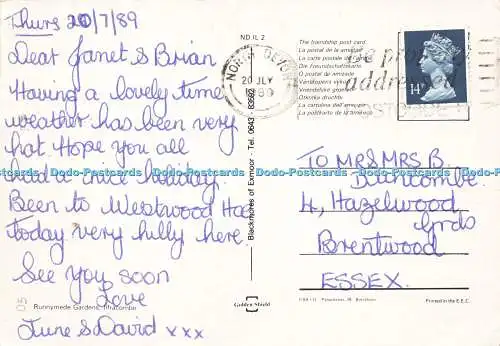 Thurs 20/7/89
Dear Janet & Brian
Having a lovely time
weather has been very
hot Hope you all
had a nice holiday.
Been to Westwood Ho
today very hilly here
See you soon
Love
June & David xxx
Runnymede Gardens, Ilfracombe
ND IL 2
Blackmores of Exmoor - Tel. 0643
Golden Shield
The friendship post card
La carte postale de l'amitié
Die Freundschaftskarte
O postal da amizade
Vänskapens vykort
Vriendelijke groeten
La cartolina dell'amicizia
La postkarto de la amikeco
NORTH DEVON
20 JLY
1989
14P
TO MR & MRS B
Duthcombe
4, Hazelwood
Grds
Brentwood
ESSEX.
Printed in the E.E.C.
Dodo-Postcards Dodo-Postcards Dodo-Postcards Dodo-Postcards Dodo-Postcards